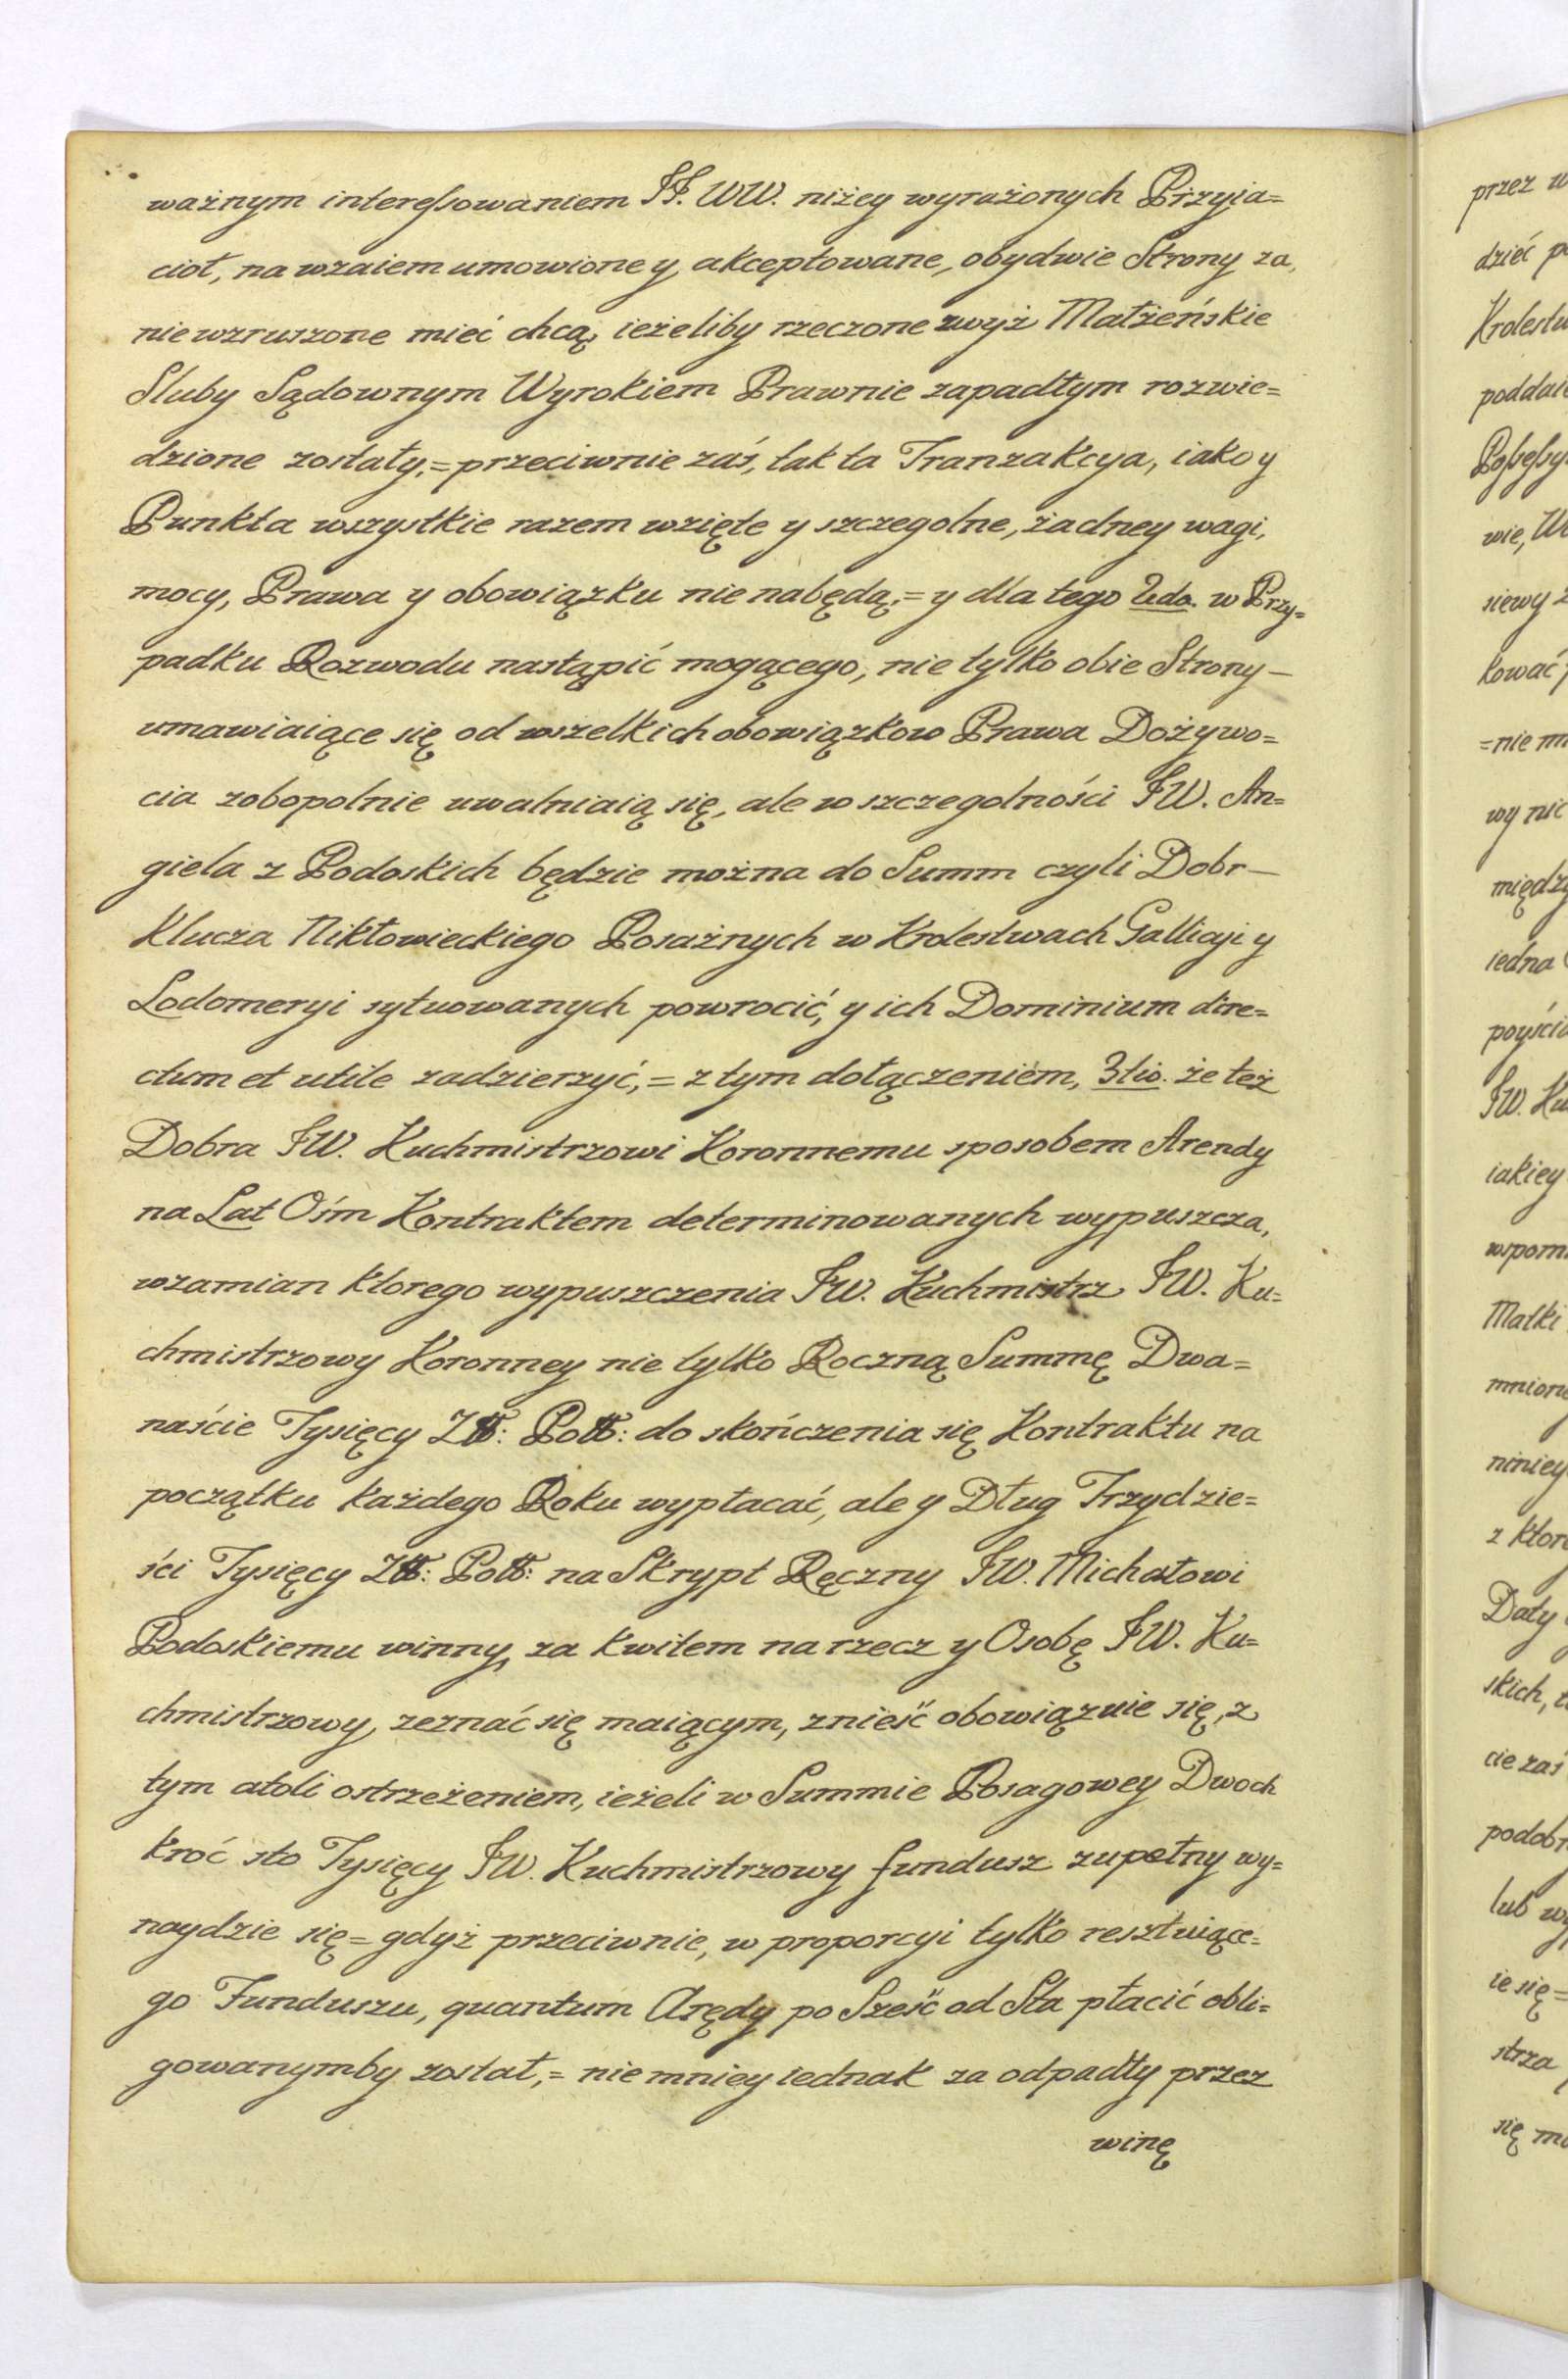 ważnym interessowaniem JJ. WW. niżey wyrażonych Przyia=
cioł, na wzaiem umowione y akceptowane, obydwie Strony za,
niewzruszone mieć chcą, ieżeliby rzeczone zwyż Małżeńskie
Sluby Sądownym Wyrokiem Prawnie zapadłym rozwie=
dzione zostały,= przeciwnie zaś, tak ta Tranzakcya, iako y
Punkta wszystkie razem wzięte y szczegolne, żadney wagi,
mocy, Prawa y obowiązku nie nabędą,= y dla tego 2do. w Przy=
padku Rozwodu nastąpić mogącego, nie tylko obie Strony —
umawiaiące się od wszelkich obowiązkow Prawa Dożywo=
cia zobopolnie uwalniaią się, ale w szczegolności JW. An=
giela z Podoskich będzie można do Summ czyli Dobr —
Klucza Niktowieckiego Posażnych w Krolestwach Gallicji y
Lodomeryi sytuowanych powrocić, y ich Dominium dire=
ctum et utile zadzierzyć,= z tym dołączeniem, 3tio. że też
Dobra JW. Kuchmistrzowi Koronnemu sposobem Arendy
na Lat Ośm Kontraktem determinowanych wypuszcza,
wzamian ktorego wypuszczenia JW. Kuchmistrz JW. Ku=
chmistrzowy Koronney nie tylko Roczną Summę Dwa=
naście Tysięcy Złł: Poll: do skończenia się Kontraktu na
początku każdego Roku wypłacać, ale y Dług Trzydzie=
ści Tysięcy Złł: Poll: na Skrypt Ręczny JW. Michałowi
Podoskiemu winny, za kwitem na rzecz y Osobę JW. Ku=
chmistrzowy, zeznać się maiącym, znieść obowiązuie się, z
tym atoli ostrzeżeniem, ieżeli w Summie Posagowey Dwoch
kroć sto Tysięcy JW. Kuchmistrzowy fundusz zupełny wy=
naydzie się = gdyż przeciwnie, w proporcyi tylko resztuiące=
go Funduszu, quantum Arędy po Sześć od Sta płacić obli=
gowanymby został,= nie mniey iednak za odpadły przez
winę
przez w
dzieć p
Krolestw
poddaie
Possessy
wie, W
siewy z
kować
=nie m
wy nic
między
iedna
poyścia
JW. Ku
iakiey
wspom
Matki
mnione
niniey
z ktor
Daty
skich, t
cie zaś
podob
lub w
ie się =
strza
się m